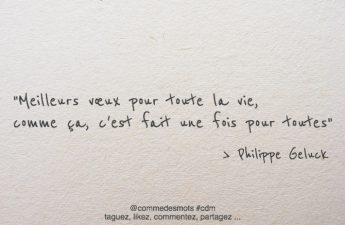 "Meilleurs vœux pour toute la vie,
comme ça, c'est fait une fois pour toutes"
> Philippe Geluck
@commedesmots #cdm
taguez, likez, commentez, partagez ...